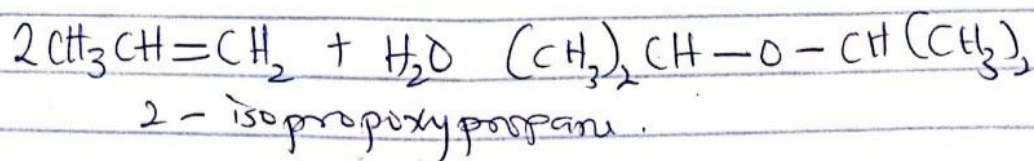 2CH₃CH=CH₂ + H₂O (CH₃)₂CH–O–CH(CH₃)₂
2 – isopropoxypropane.